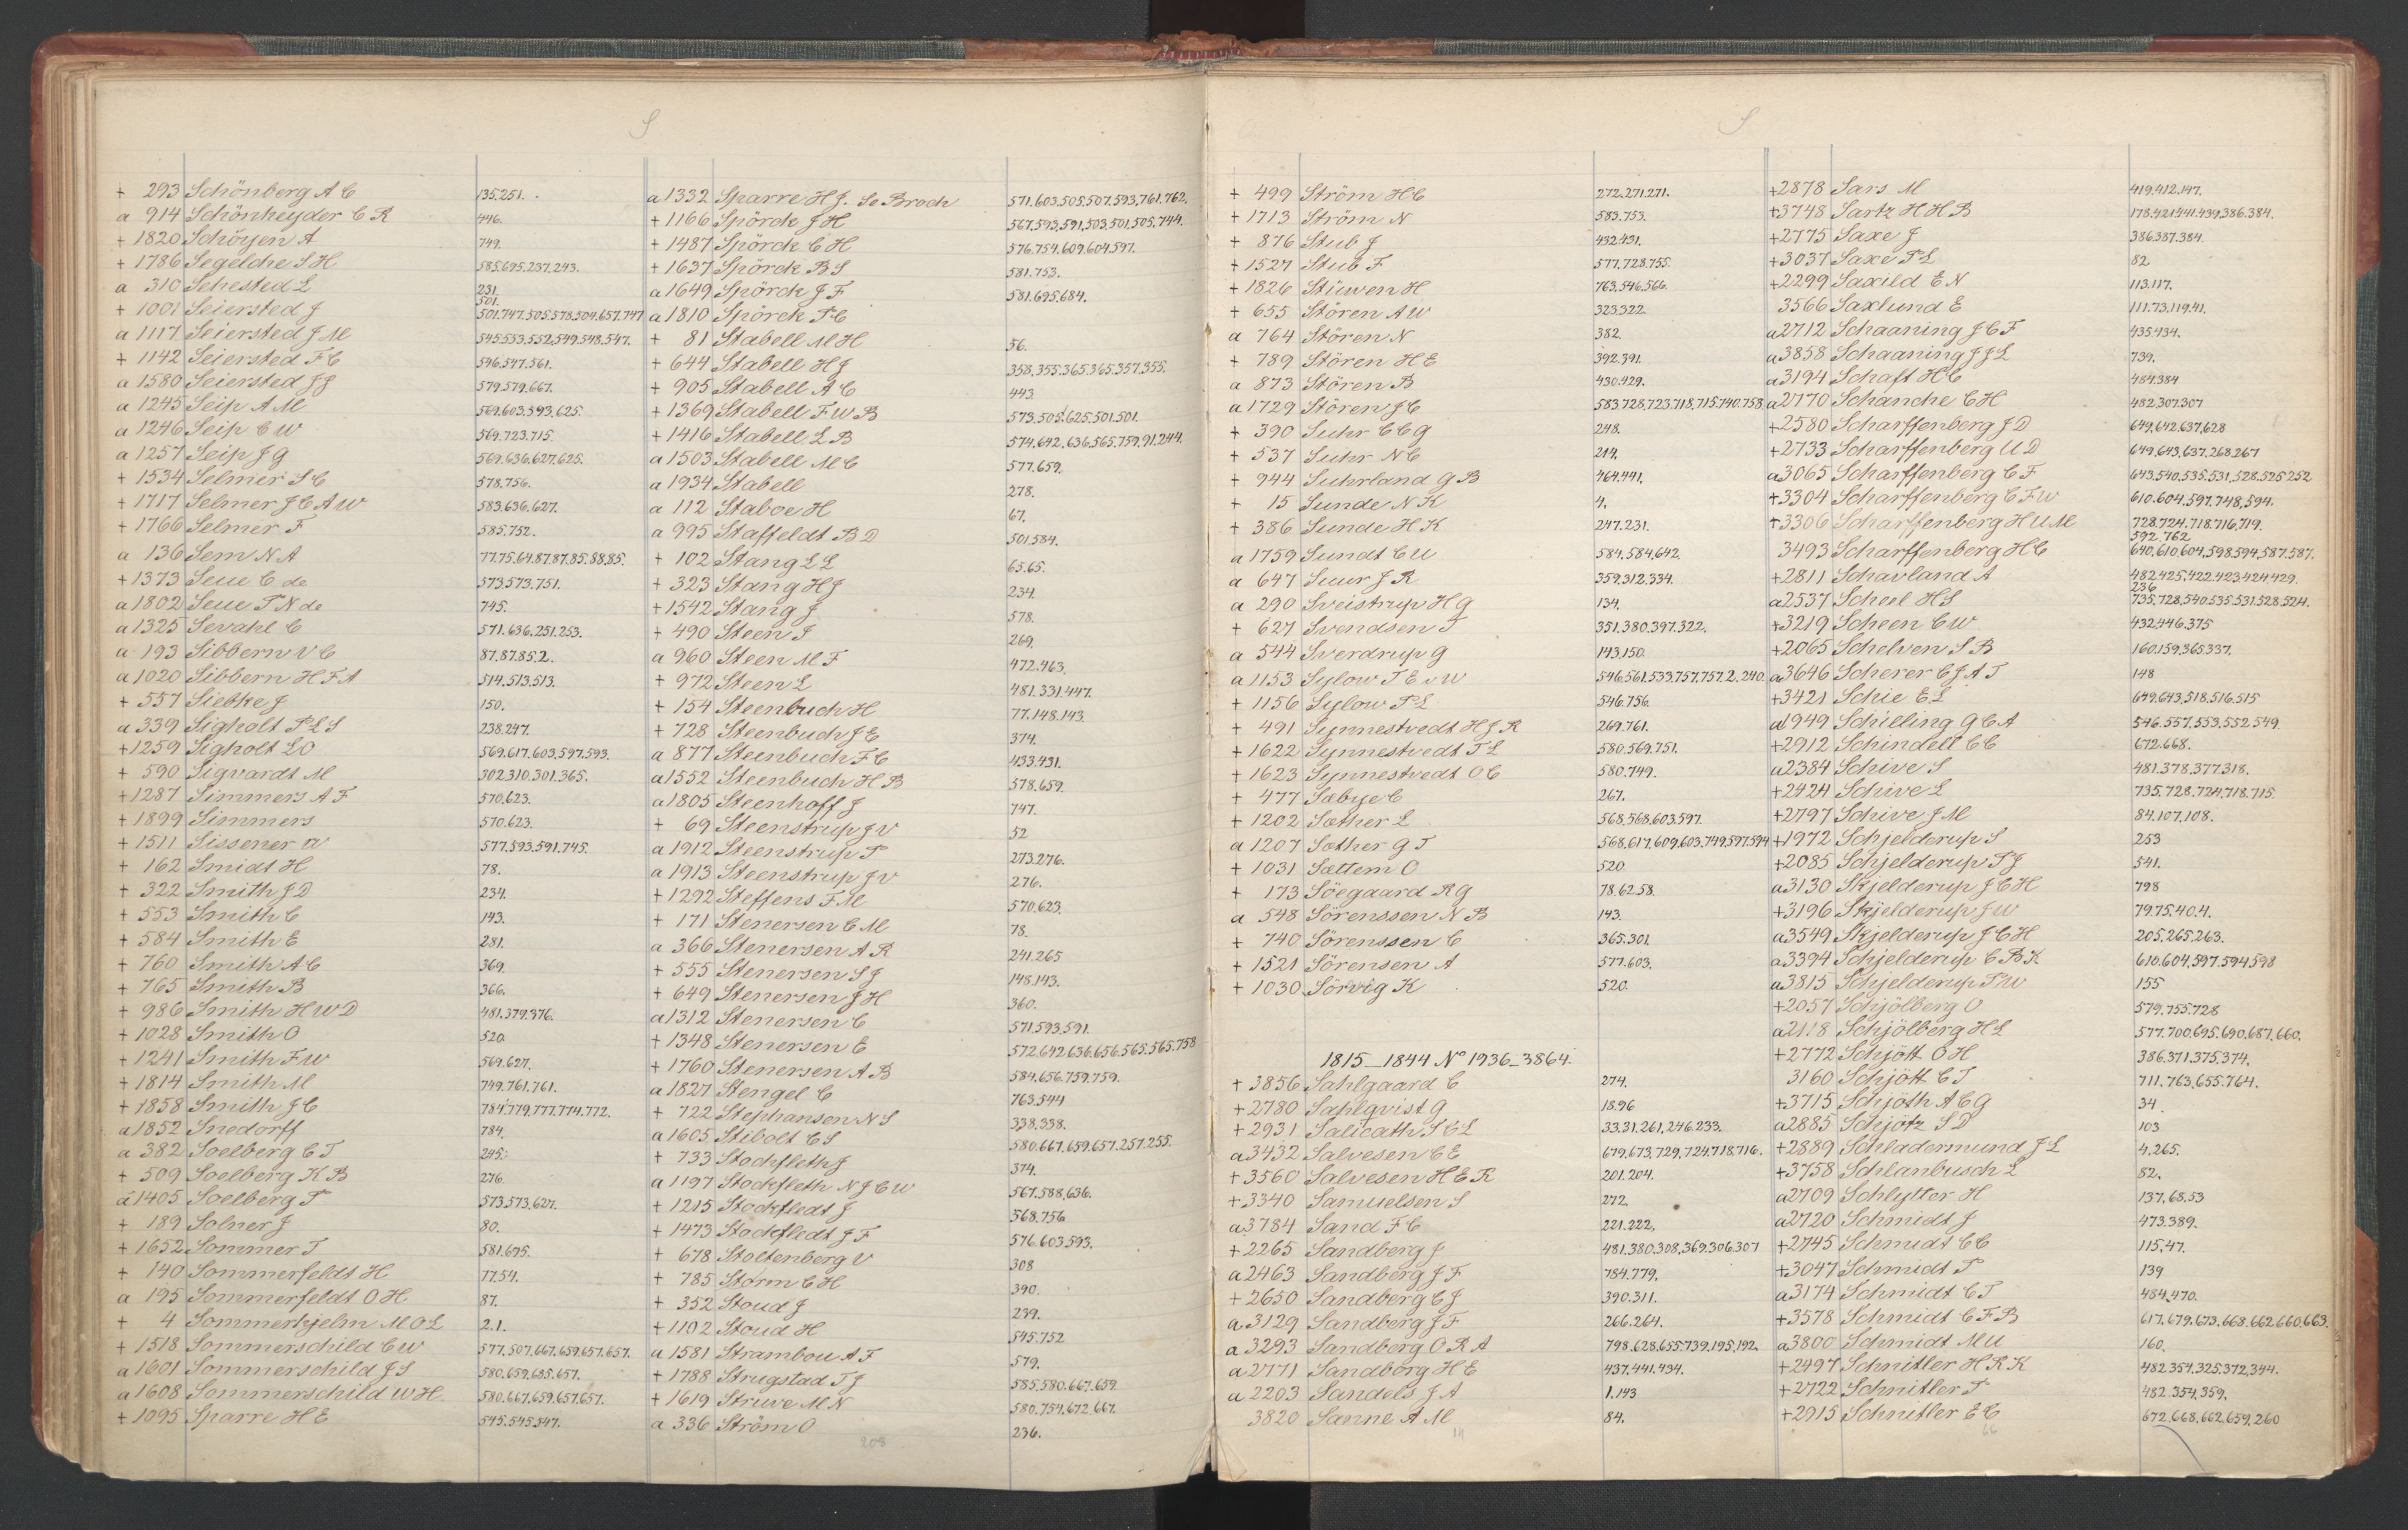 S
+ 293 Schönberg A C 135.251.
a 914 Schönheyder C R 446.
+ 1820 Schöyen A 749.
+ 1786 Segelche S H 585.695.237.243.
a 310 Sehested L 231.
501.
+ 1001 Seiersted J 501.747.505.578.504.657.747
a 1117 Seiersted J M 545.553.552.549.548.547.
+ 1142 Seiersted F C 546.547.561.
a 1580 Seiersted J J 579.579.667.
a 1245 Seip A M 569.603.593.625.
a 1246 Seip C W 569.723.715.
a 1257 Seip J G 569.636.627.625.
+ 1534 Selmer S C 578.756.
+ 1717 Selmer J C A W 583.636.627.
+ 1766 Selmer F 585.752.
a 136 Sem N A 77.75.64.87.87.85.88.85.
+ 1373 Seue C de 573.573.751.
a 1802 Seue P N de 745.
a 1325 Sevahl C 571.636.251.253.
a 193 Sibbern V C 87.87.85.2.
a 1020 Sibbern H F A 514.513.513.
+ 557 Siebke J 150.
a 339 Sigholt P L S 238.247.
+ 1259 Sigholt L O 569.617.603.597.593.
+ 590 Sigvardt M 302.310.301.365.
+ 1287 Simmers A F 570.623.
+ 1899 Simmers 570.623.
+ 1511 Sissener W 577.593.591.745.
+ 162 Smidt H 78.
+ 322 Smith J D 234.
+ 553 Smith C 143.
+ 584 Smith E 281.
+ 760 Smith A C 369.
+ 765 Smith B 366.
+ 986 Smith H W D 481.379.376.
+ 1028 Smith O 520.
+ 1241 Smith F W 569.627.
+ 1814 Smith M 749.761.761.
+ 1858 Smith J C 784.779.777.774.772.
a 1852 Snedorff 784.
a 382 Soelberg C T 245.
+ 509 Soelberg K B 276.
a 1405 Soelberg P 573.573.627.
+ 189 Solner J 80.
+ 1652 Sommer T 581.695.
+ 140 Sommerfeldt H 77.54.
a 195 Sommerfeldt O H 87.
+ 4 Sommerhjelm M O L 2.1.
+ 1518 Sommerschild C W 577.507.667.659.657.657.
a 1601 Sommerschild J S 580.659.685.657.
a 1608 Sommerschild W H. 580.667.659.657.657.
+ 1095 Sparre H E 545.545.547.
a 1332 Sparre H J. Se Broch 571.603.505.507.593.761.762.
+ 1166 Spörck J H 567.593.591.503.501.505.744.
+ 1487 Spörck C H 576.754.609.604.597.
+ 1637 Spörck B S 581.753.
a 1649 Spörck J F 581.695.684.
a 1810 Spörck P C
+ 81 Stabell M H 56.
+ 644 Stabell H J 358.355.365.365.357.355.
+ 905 Stabell A C 443.
+ 1369 Stabell F W B 573.505.625.501.501.
+ 1416 Stabell L B 574.642.636.565.759.91.244.
a 1503 Stabell M C 577.659.
a 1934 Stabell 278.
a 112 Staboe H 67.
a 995 Staffeldt B D 501.584.
+ 102 Stang L L 65.65.
+ 323 Stang H J 234.
+ 1542 Stang J 578.
+ 490 Steen I 269.
a 960 Steen M F 472.463.
+ 972 Steen L 481.331.447.
+ 154 Steenbuch H 77.148.143.
+ 728 Steenbuch J E 374.
a 877 Steenbuch F C 433.431.
a 1552 Steenbuch H B 578.659.
a 1805 Steenhoff J 747.
+ 69 Steenstrup J V 52
a 1912 Steenstrup P 273.276.
a 1913 Steenstrup J V 276.
+ 1292 Steffens F M 570.623.
+ 171 Stenersen C M 78.
a 366 Stenersen A R 241.265
+ 555 Stenersen S J 148.143.
+ 649 Stenersen J H 360.
a 1312 Stenersen C 571.593.591.
+ 1348 Stenersen E 572.642.636.656.565.565.758
+ 1760 Stenersen A B 584.656.759.759.
a 1827 Stengel C 763.544
+ 722 Stephansen N S 338.338.
a 1605 Stibolt C S 580.667.659.657.257.255.
+ 733 Stockfleth J 374.
a 1197 Stockfleth N J C W 567.588.636.
+ 1215 Stockfledt J 568.756
+ 1473 Stockfledt J F 576.603.593.
+ 678 Stoltenberg V 308
+ 785 Storm C H 390.
+ 352 Stoud J 239.
+ 1102 Stoud H 545.752
a 1581 Strambou A F 579.
+ 1788 Strugstad T J 585.580.667.659
+ 1619 Struve M N 580.754.672.667.
a 336 Ström O 236.
208
S
+ 499 Ström H C 272.271.271.
+ 1713 Ström N 583.753.
+ 876 Stub J 432.431.
+ 1527 Stub F 577.728.755.
+ 1826 Stüwen H 763.546.566.
+ 655 Stören A W 323.322.
a 764 Stören N 382.
+ 789 Stören H E 392.391.
a 873 Stören B 430.429.
a 1729 Stören J C 583.728.723.718.715.740.758.
+ 390 Suhr C C G 248.
+ 537 Suhr N C 214.
+ 944 Suhrland G B 464.441.
+ 15 Sunde N K 4.
+ 386 Sunde H K 247.231.
a 1759 Sundt C U 584.584.642.
a 647 Suur J R 359.312.334.
a 290 Sveistrup H G 134.
+ 627 Svendsen T 351.380.397.322.
a 544 Sverdrup G 143.150.
a 1153 Sylow T E v W 546.561.533.757.757.2.240.
+ 1156 Sylow P L 546.756.
+ 491 Synnestvedt H J R 269.761.
+ 1622 Synnestvedt T L 580.569.751.
+ 1623 Synnestvedt O C 580.749.
+ 477 Sæbye C 267.
+ 1202 Sæther L 568.568.603.597.
a 1207 Sæther G T 568.617.609.603.749.597.594
+ 1031 Sættem O 520.
+ 173 Söegaard R G 78.62.58.
a 548 Sörenssen N B 143.
+ 740 Sörenssen C 365.301.
+ 1521 Sörensen A 577.603.
+ 1030 Sörvig K 520.
1815_1844 No 1936_3864.
+ 3856 Sahlgaard C 274.
+ 2780 Sahlqvist G 18.96
+ 2931 Salicath S C L 33.31.261.246.233.
a 3432 Salvesen C E 679.673.729.724.718.716.
+ 3560 Salvesen H E R 201.204.
+ 3340 Samuelsen S 272.
a 3784 Sand F C 221.222.
+ 2265 Sandberg J 481.380.308.369.306.307
a 2463 Sandberg J F 784.779.
+ 2650 Sandberg C J 390.311.
a 3129 Sandberg J F 266.264.
a 3293 Sandberg O R A 798.628.655.739.195.192.
a 2771 Sandborg H E 437.441.434.
a 2203 Sandels J A 1.143
3820 Sanne A M 84.
+ 2878 Sars M 419.412.147.
+ 3748 Sartz H H B 178.421.441.439.386.384.
+ 2775 Saxe J 386.387.384.
+ 3037 Saxe P L 82
+ 2299 Saxild E N 113.117.
3566 Saxlund E 111.73.119.41.
a 2712 Schaaning J C F 435.434.
a 3858 Schaaning J J L 739.
a 3194 Schaft H C 484.384
a 2170 Schanche C H 482.307.307
+ 2580 Scharffenberg J D 649.642.637.628
+ 2733 Scharffenberg U D 649.643.637.268.267
a 3065 Scharffenberg C F 643.540.535.531.528.525.252
+ 3304 Scharffenberg C F W 610.604.597.748.594.
+ 3306 Scharffenberg H U M 728.724.718.716.719.
592.762
3493 Scharffenberg H C 640.610.604.598.594.587.587.
+ 2811 Schavland A 482.425.422.423.424.429.
236
a 2537 Scheel H S 735.728.540.535.531.528.524.
+ 3219 Scheen C W 432.446.375
+ 2065 Schelven S B 160.159.365.337.
a 3646 Scherer C J A T 148
+ 3421 Schie E L 649.643.518.516.515
a 1949 Schilling G C A 546.557.553.552.549
+ 2912 Schindell C C 672.668.
a 2384 Schive S 481.378.377.318.
+ 2424 Schive L 735.728.724.718.715.
+ 2797 Schive J M 84.107.108.
+ 1972 Schjelderup S 253
+ 2085 Schjelderup P J 541.
a 3130 Skjelderup J C H 798
+ 3196 Skjelderup J W 79.75.40.4.
a 3549 Skjelderup J C H 205.265.263.
a 3394 Schjelderup C B K 610.604.597.594.598
a 3815 Schjelderup P W 155
+ 2057 Schjölberg O 579.755.728
a 2118 Schjölberg H L 577.700.695.690.687.660.
+ 2772 Schjött O H 386.371.375.374.
3160 Schjött C T 711.763.655.764.
+ 3715 Schjöth A C G 34
a 2885 Schjötz S D 103
+ 2889 Schladermund J L 4.265.
+ 3758 Schlanbusch L 82.
a 2709 Schlytter H 137.68.53
a 2720 Schmidt J 473.389.
+ 2745 Schmidt C C 115.47.
+ 3047 Schmidt P 139
a 3174 Schmidt C T 484.470.
+ 3578 Schmidt C F B 617.679.673.668.662.660.663.
a 3800 Schmidt M U 160.
+ 2497 Schnitler H R K 482.354.325.372.344.
+ 2722 Schnitler P 482.354.359.
+ 2915 Schnitler E C 672.668.662.659.260
14
66